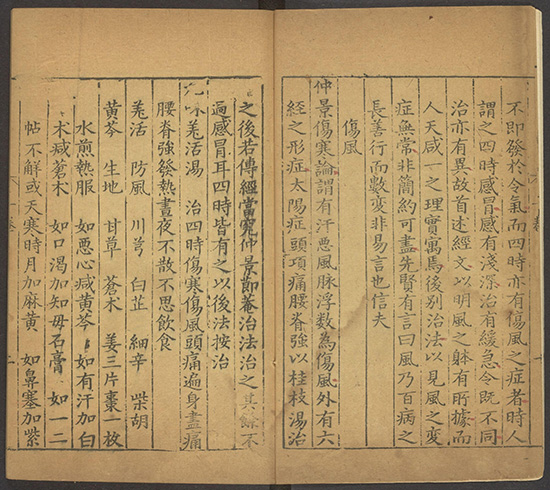 不即發於令氣而四時亦有傷風之症者時人
謂之四時感冒感有淺深治有緩急令既不同
治亦有異故首述經文以明風之躰有所據而
人天咸一之理實寓焉後別治法以見風之變
症無常非簡約可盡先賢有言曰風乃百病之
長善行而數變非易言也信夫
傷風
仲景傷寒論謂有汗惡風脉浮数為傷風外有六
經之形症太陽症頭項痛腰脊強以桂枝湯治
之後若傳經當究仲景節菴治法治之其餘不
過感冒耳四時皆有之以後法按治
九味羗活湯 治四時傷寒傷風頭痛遍身盡痛
腰脊強發熱晝夜不散不思飲食
羗活 防風 川芎 白芷 細辛 柴胡
黄芩 生地 甘草 蒼术 姜三片棗一枚
水煎熱服 如惡心减黄芩 如有汗加白
术减蒼术 如口渴加知毋石膏 如一二
帖不解或天寒時月加麻黄 如鼻塞加紫